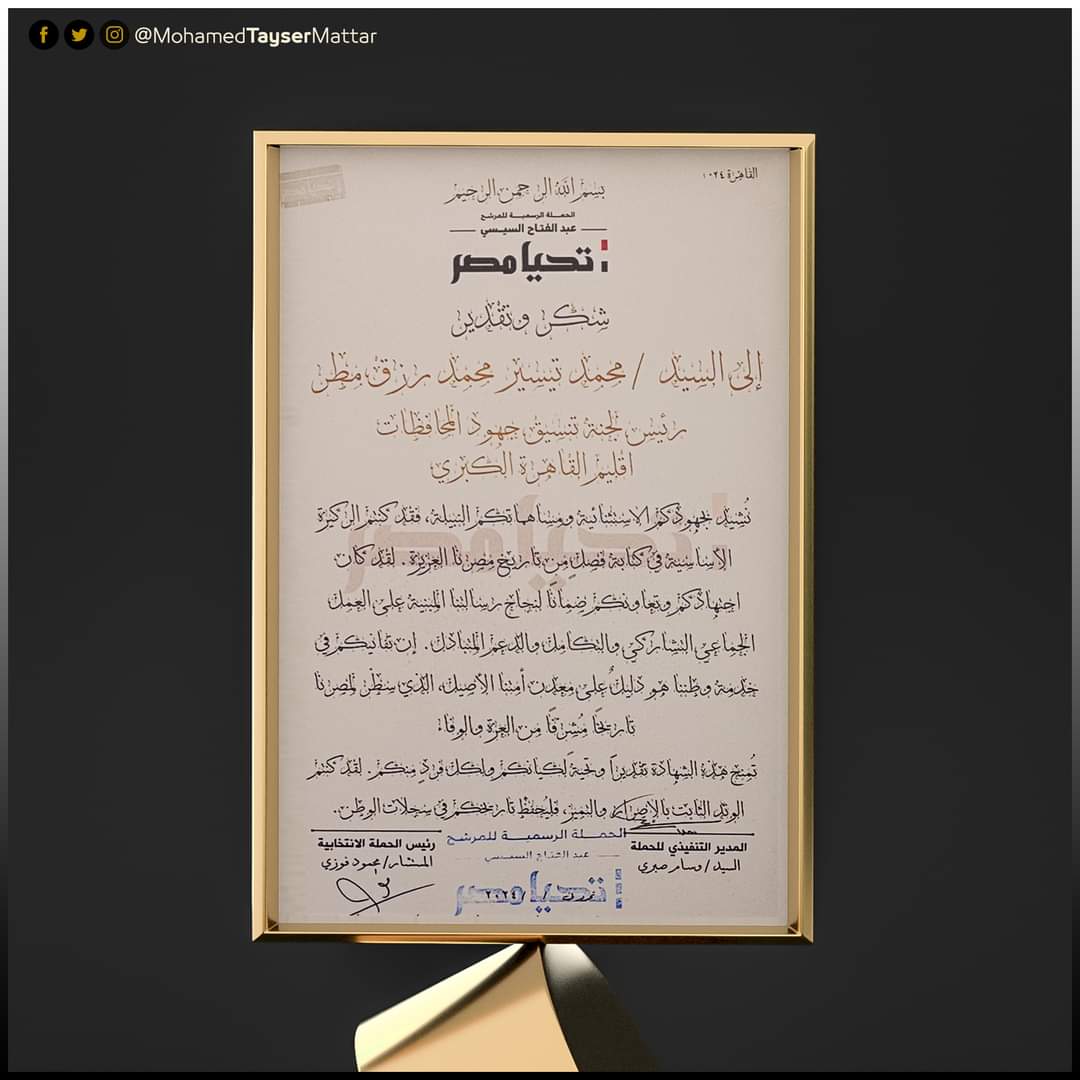 @MohamedTayserMattar
القاهرة ١٠٢٤
بسم الله الرحمن الرحيم
الحملة الرسمية للمرشح
عبد الفتاح السيسي
تحيا مصر
شكر وتقدير
إلى السيد / محمد تيسير محمد رزق مطر
رئيس لجنة تنسيق جهود المحافظات
اقليم القاهرة الكبري
نُشيد بجهودكم الاستثنائية ومساهماتكم النبيلة، فقد كنتم الركيزة
الأساسية في كتابة فصلٍ من تاريخ مصرنا العزيزة. لقد كان
اجتهادكم وتعاونكم ضمانًا لنجاح رسالتنا المبنية على العمل
الجماعي التشاركي والتكامل والدعم المتبادل. إن تفانيكم في
خدمة وطننا هو دليلٌ على معدن أمتنا الأصيل، الذي سطَّر لمصرنا
تاريخًا مُشرقًا من العزة والوفاء:
تُمنح هذه الشهادة تقديراً وتحيةً لكيانكم ولكل فردٍ منكم. لقد كنتم
الوتد الثابت بالإصرار والتميز، فليُحفظ تاريخكم في سجلات الوطن.
المدير التنفيذي للحملة
السيد/ وسام صبري
الحملة الرسمية للمرشح
عبد الفتاح السيسي
تحيا مصر
٢٠٢٤
رئيس الحملة الانتخابية
المستشار/ محمود فوزي